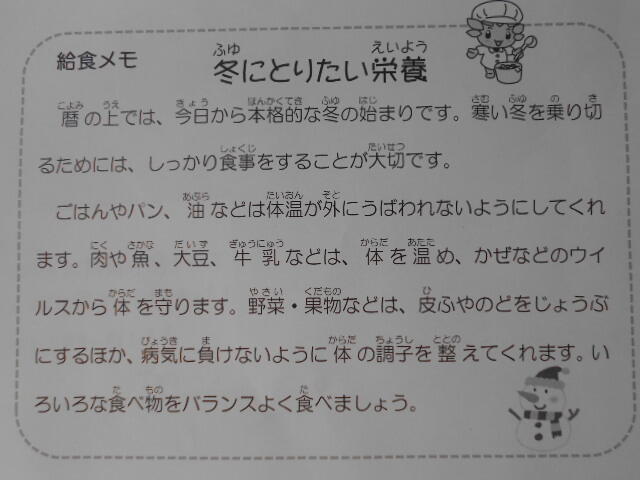 給食メモ
冬にとりたい栄養
暦の上では、今日から本格的な冬の始まりです。寒い冬を乗り切
るためには、しっかり食事をすることが大切です。
ごはんやパン、油などは体温が外にうばわれないようにしてくれ
ます。肉や魚、大豆、牛乳などは、体を温め、かぜなどのウイ
ルスから体を守ります。野菜・果物などは、皮ふやのどをじょうぶ
にするほか、病気に負けないように体の調子を整えてくれます。い
ろいろな食べ物をバランスよく食べましょう。